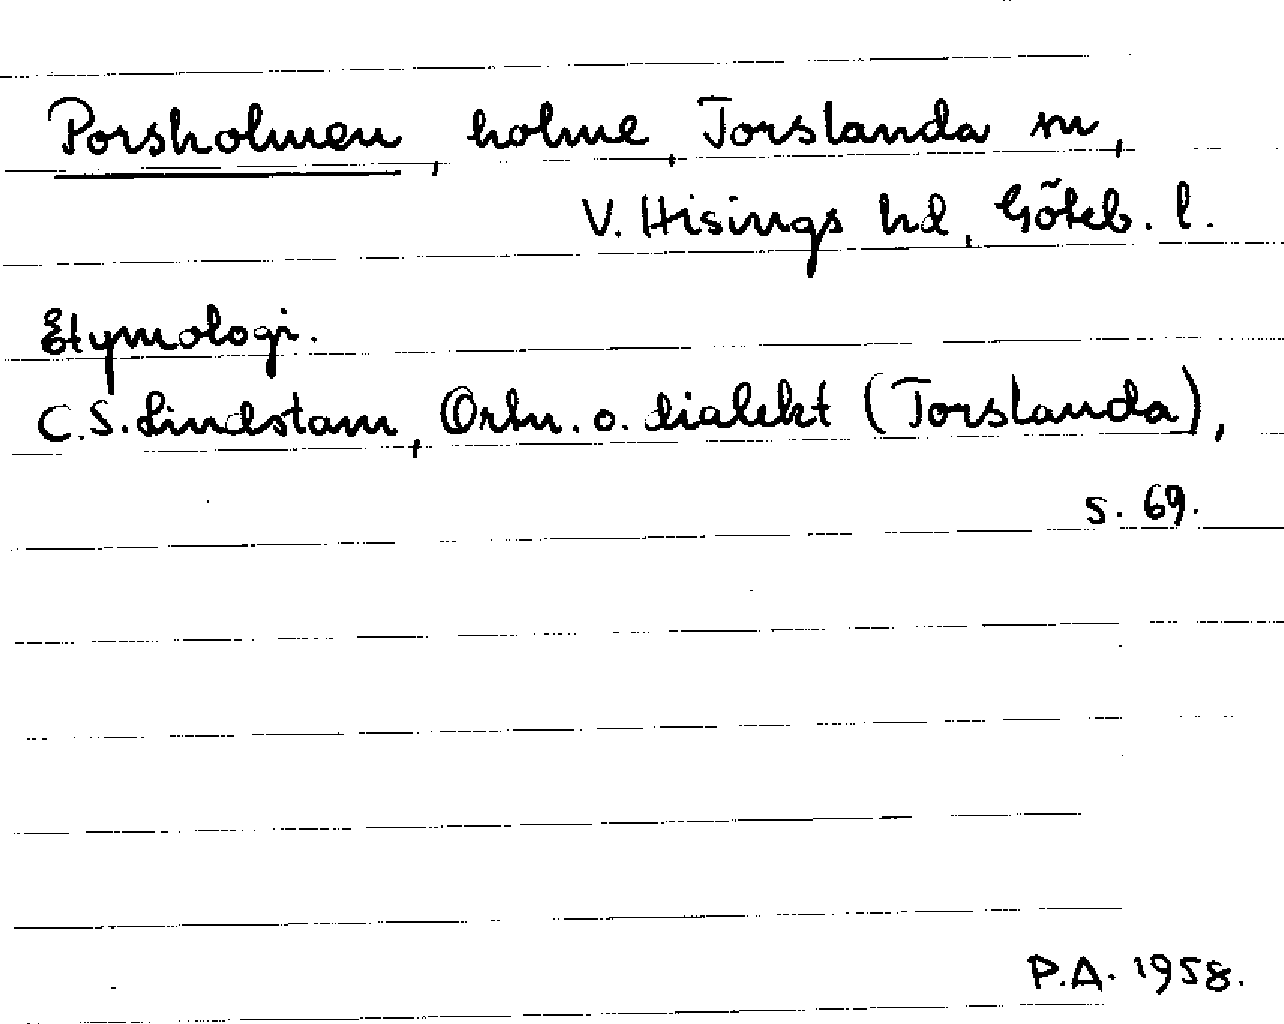 Porsholmen, holme, Torslanda sn,
V. Hisings hd, Göteb. l.
Etymologi.
C.S. Lindstam, Ortn. o. dialekt (Torslanda),
s. 69.
P.A. 1958.